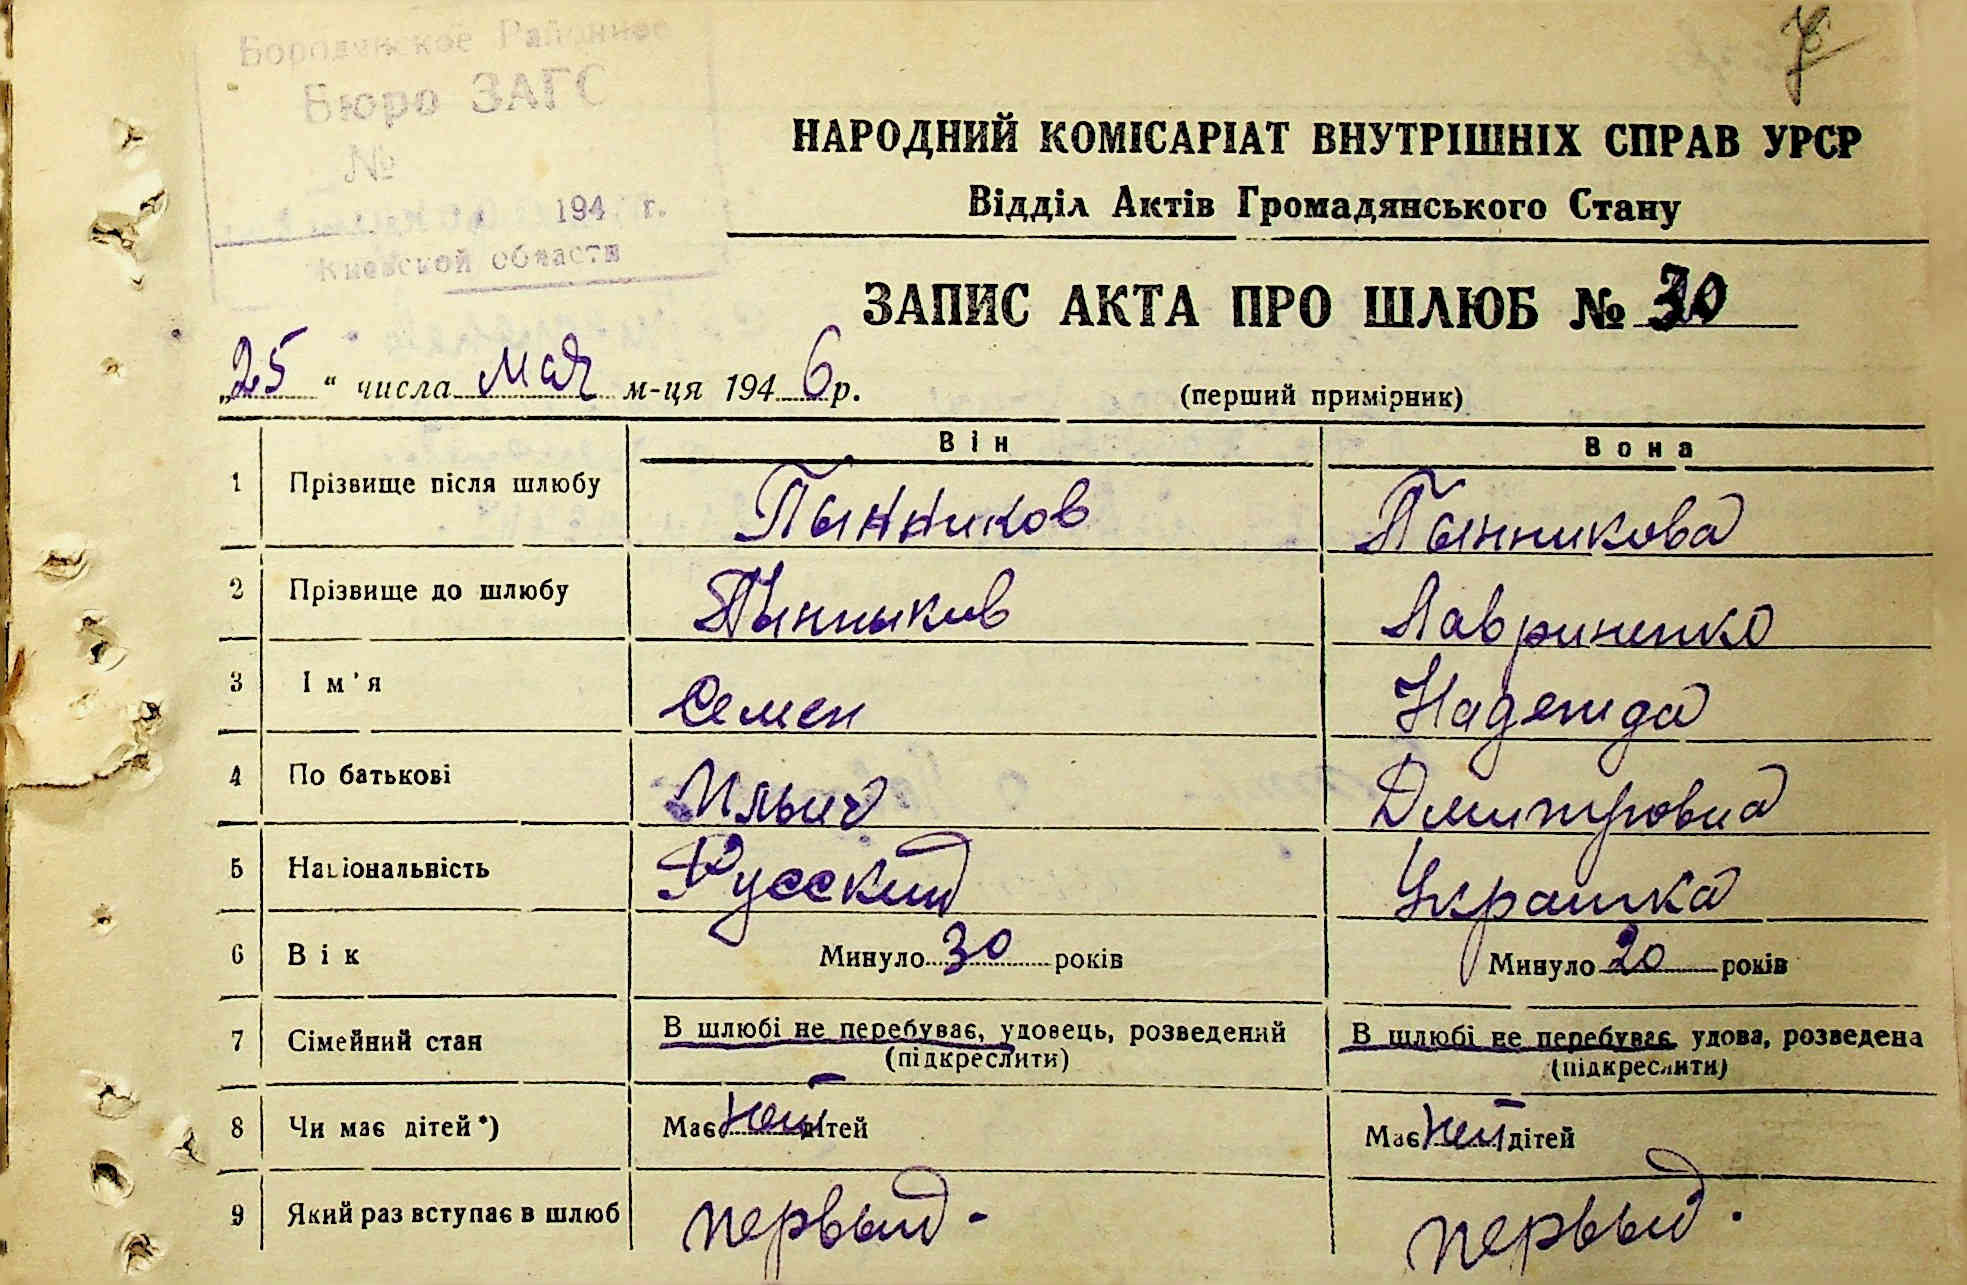 Бородянское Районное
Бюро ЗАГС
№
194 г.
Киевской области
НАРОДНИЙ КОМІСАРІАТ ВНУТРІШНІХ СПРАВ УРСР
Відділ Актів Громадянського Стану
ЗАПИС АКТА ПРО ШЛЮБ № 30
„25“ числа мая м-ця 1946 р. (перший примірник)
Він Вона
1 Прізвище після шлюбу Пынников Пынникова
2 Прізвище до шлюбу Пынныков Лавриненко
3 Ім'я Семен Надежда
4 По батькові Ильич Дмитровна
5 Національність Русский Украинка
6 Вік Минуло 30 років Минуло 20 років
7 Сімейний стан В шлюбі не перебуває, удовець, розведений В шлюбі не перебуває, удова, розведена
(підкреслити) (підкреслити)
8 Чи має дітей*) Має дітей Має дітей
9 Який раз вступає в шлюб первый - первый.